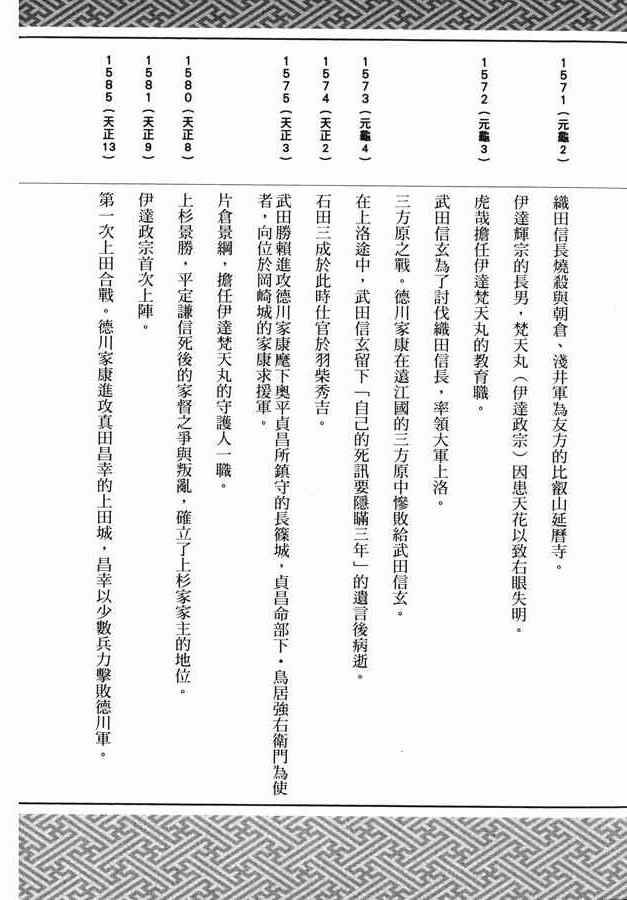 1571（元龜2）
織田信長燒殺與朝倉、淺井軍為友方的比叡山延曆寺。
伊達輝宗的長男，梵天丸（伊達政宗）因患天花以致右眼失明。
1572（元龜3）
虎哉擔任伊達梵天丸的教育職。
武田信玄為了討伐織田信長，率領大軍上洛。
三方原之戰。德川家康在遠江國的三方原中慘敗給武田信玄。
1573（元龜4）
在上洛途中，武田信玄留下「自己的死訊要隱瞞三年」的遺言後病逝。
1574（天正2）
石田三成於此時仕官於羽柴秀吉。
1575（天正3）
武田勝賴進攻德川家康麾下奧平貞昌所鎮守的長篠城，貞昌命部下・鳥居強右衛門為使
者，向位於岡崎城的家康求援軍。
片倉景綱，擔任伊達梵天丸的守護人一職。
1580（天正8）
上杉景勝，平定謙信死後的家督之爭與叛亂，確立了上杉家家主的地位。
1581（天正9）
伊達政宗首次上陣。
1585（天正13）
第一次上田合戰。德川家康進攻真田昌幸的上田城，昌幸以少數兵力擊敗德川軍。